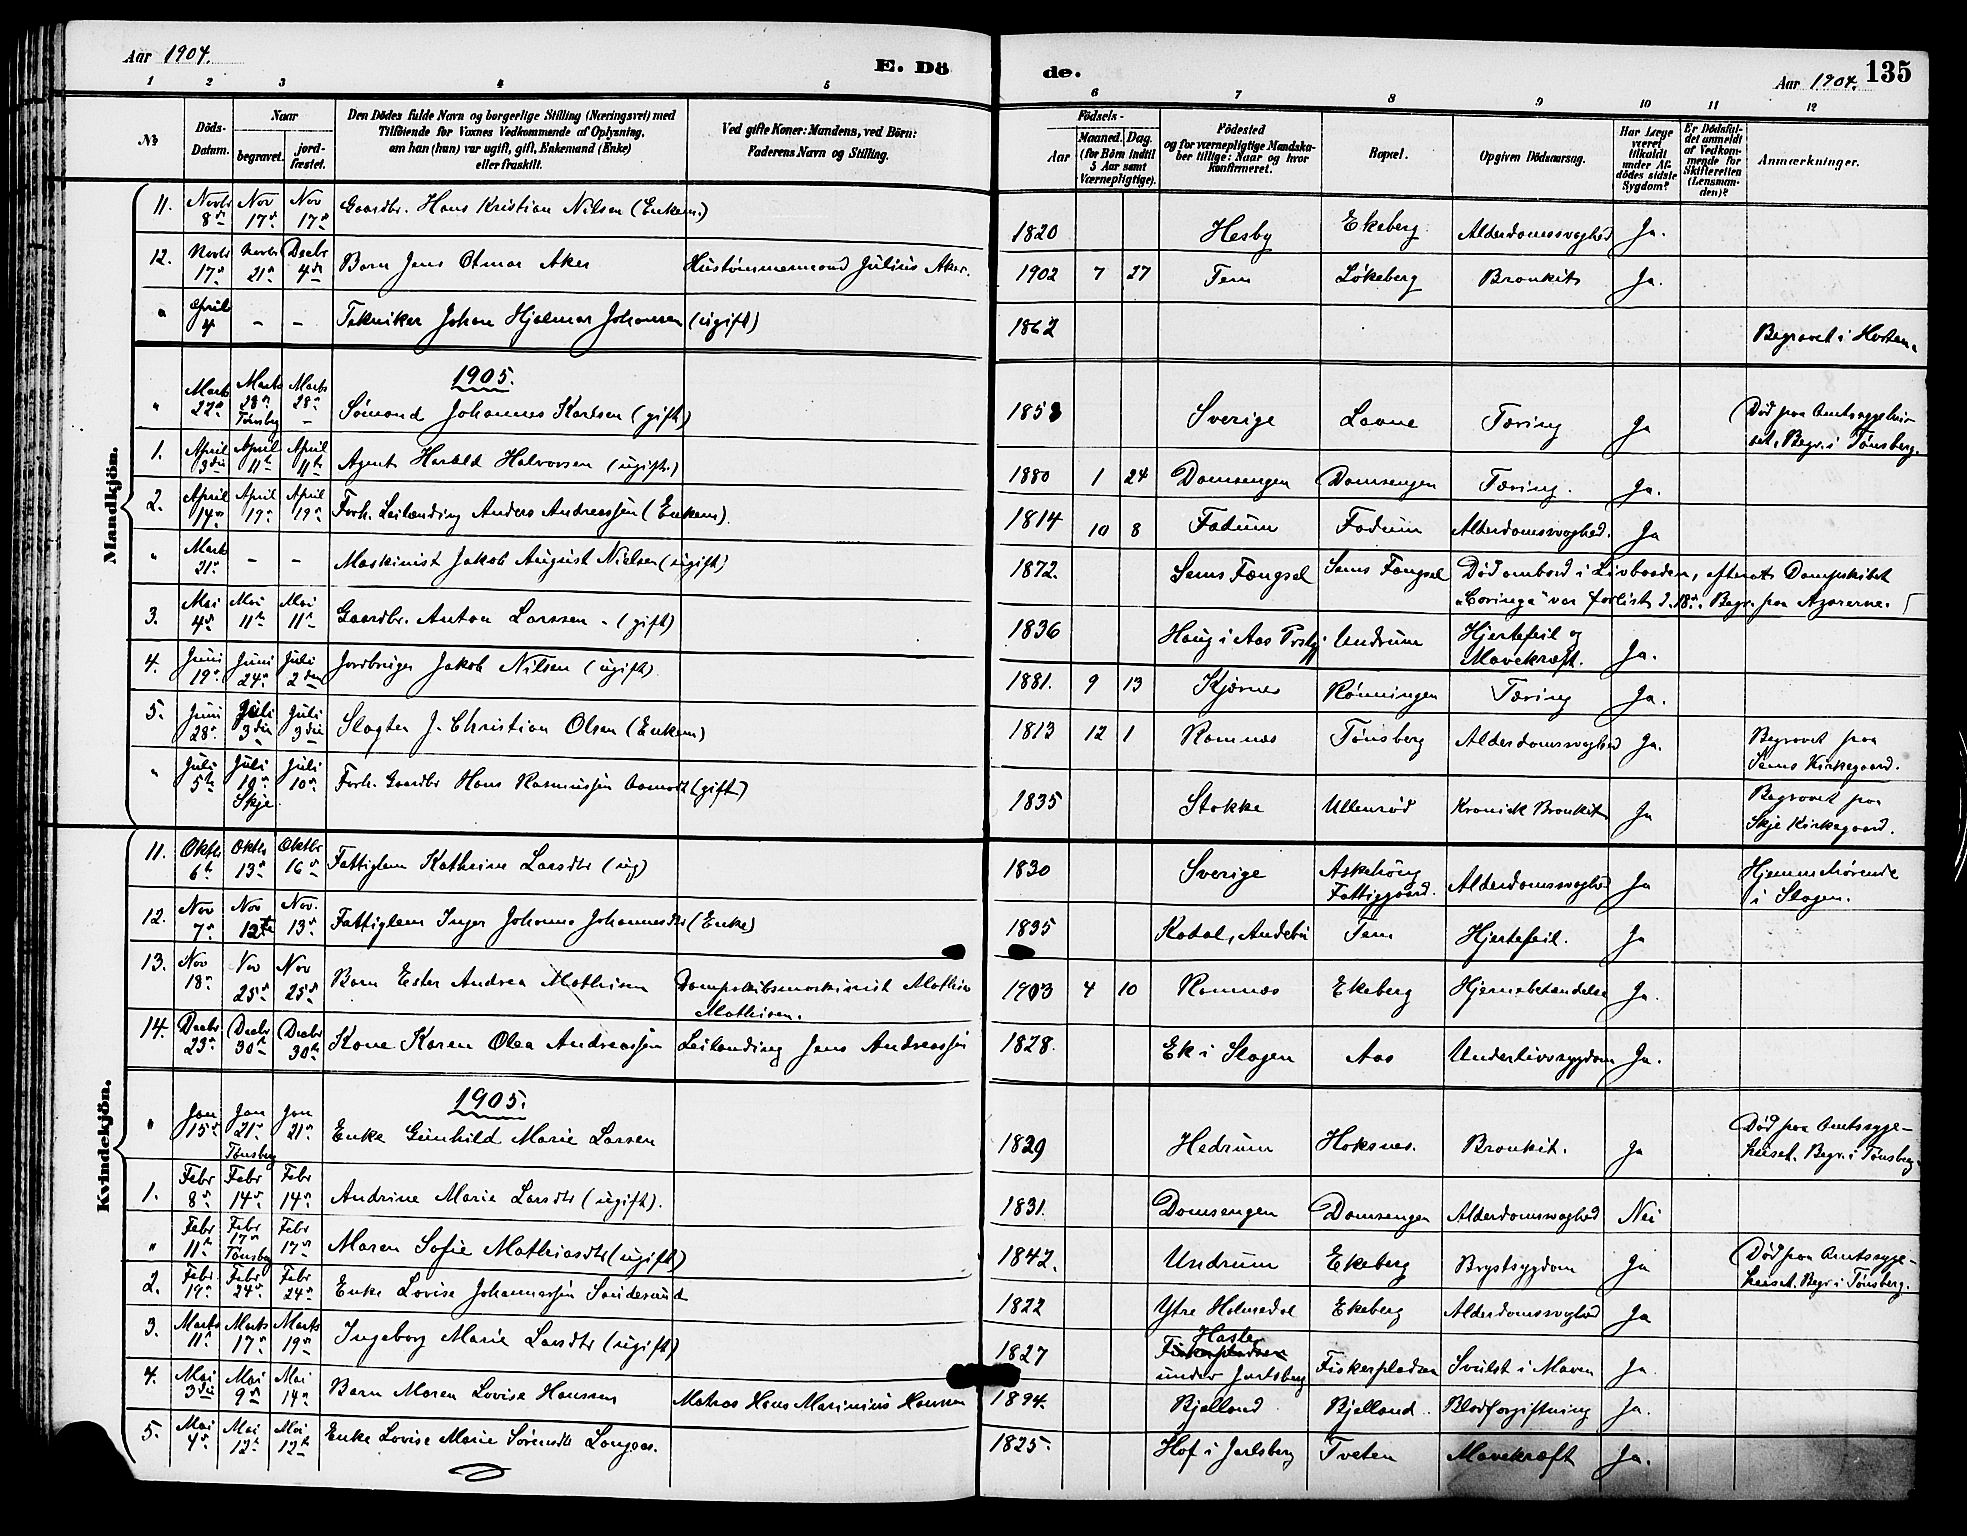 Aar 1904.
E. Dö
de.
Aar 1904.
135
1 2 3 4 5 6 7 8 9 10 11 12
№
Döds-Datum.
Naar
begravet.
jord-fæstet.
Den Dödes fulde Navn og borgerlige Stilling (Næringsvei) med
Tilföiende for Voxnes Vedkommende af Oplysning,
om han (hun) var ugift, gift, Enkemand (Enke)
eller fraskilt.
Ved gifte Koner: Mandens, ved Börn:
Faderens Navn og Stilling.
Födsels-
Aar
Maaned. Dag.
(for Börn indtil
5 Aar samt
Værnepligtige).
Födested
og for værnepligtige Mandska-
ber tillige: Naar og hvor
konfirmeret.
Bopæl.
Opgiven Dödsaarsag.
Har Læge
været
tilkaldt
under Af-
dödes sidste
Sygdom?
Er Dödsfal-
det anmeldt
af Vedkom-
mende for
Skifteretten
(Lensman-
den)?
Anmærkninger.
Mandkjön.
11. Novbr 8de Nov 17de Nov 17de Gaardbr. Hans Kristian Nilsen (Enkem.) 1820 Hesby Ekeberg Alderdomssvaghed Ja.
12. Novbr 17de Novbr 21de Decbr 4de Barn Jens Otmar Aker Hustømmermand Julius Aker. 1902 7 27 Tem Løkeberg Bronkit Ja.
" April 4 – – Tekniker Johan Hjalmar Johansen (ugift) 1862 Begravet i Horten.
1905.
" Marts 22de Marts 28de Tønsberg Marts 28de – Sømand Johannes Karlsen (gift) 1858 Sverige Lavne Tæring Ja Død paa Amtssygehu-
set. Begr. i Tønsberg.
1. April 3die April 11te April 11te Agent Harald Halvorsen (ugift.) 1880 1 24 Domsengen Domsengen Tæring. Ja.
2. April 14de April 19de April 19de Forh. Leilænding Anders Andreassen (Enkem). 1814 10 8 Fadum Fadum Alderdomssvaghed. Ja
" Marts 21de – – Maskinist Jakob August Nielsen (ugift) 1872. Sems Fængsel Sems Fængsel Død ombord i Livbaaden, efterat Dampskibet
"Coringa" var forlist d. 18de. Begr. paa Azorerne.
3. Mai 4de Mai 11te Mai 11te Gaardbr. Anton Larssen – (gift) 1836 Haug i Aas Prstgj Undrum Hjertefeil og
Mavekræft. Ja.
4. Juni 19de Juni 24de Juli 2den Jordbruger Jakob Nilsen (ugift) 1881. 9 13 Kjærnes Rønningen Tæring Ja.
5. Juni 28de Juli 3die Juli 3die Slagter J. Christian Olsen (Enkem) 1813 12 1 Ramnæs Tønsberg Alderdomssvaghed Ja. Begravet paa
Sems Kirkegaard.
" Juli 5te Juli 10de Skje. Juli 10de Forh. Gaardbr Hans Rasmussen Aamodt (gift) 1835 Stokke Ullenrød Kronisk Bronkit Ja Begravet paa
Skje Kirkegaard.
Kvindekjön.
11. Oktbr 6te Oktbr 13de Oktbr 16de Fattiglem Kathrine Larsdtr (ug) 1830 Sverige Askehoug
Fattiggaard. Alderdomssvaghed Ja Hjemmehørende
i Slagen.
12. Nov 7de Nov 12te Nov. 13de Fattiglem Inger Johanne Johannesdtr (Enke) 1835 Kodal, Andebu Tem Hjertefeil. Ja
13. Nov 18de Nov 25de Nov 25de Barn Ester Andrea Mathisen Dampskibsmaskinist Mathias
Mathisen. 1903 4 10 Ramnæs Ekeberg Hjernebetændelse Ja.
14. Decbr 23de Decbr 30te Decbr 30te Kone Karen Olea Andreassen Leilænding Jens Andreassen 1828. Ek i Slagen Aas Underlivssygdom Ja.
1905.
" Jan 15de Jan 21de Tønsberg Jan 21de Enke Gunhild Marie Larsen 1829 Hedrum Hoksnes. Bronkit. Ja Død paa Amtssyge-
huset. Begr. i Tønsberg.
1. Febr 8de Febr 14de Febr 14de Andrine Marie Larsdtr (ugift). 1831. Domsengen Domsengen Alderdomssvaghed Nei
" Febr 11te Febr 17de Tønsberg Febr 17de Maren Sofie Mathiasdtr (ugift) 1842. Undrum Ekeberg Brystsygdom Ja Død paa Amtssyge-
huset. Begr. i Tønsberg.
2. Febr 19de Febr 24de Febr 24de Enke Lovise Johannessen Sandesund 1822 Ytre Holmedal Ekeberg Alderdomssvaghed Ja
3. Marts 11te Marts 17de Marts 19de Ingeborg Marie Larsdtr (ugift) 1827 Hasle
Fiskerpladsen
under Jarlsberg Fiskerpladsen Svulst i Maven Ja.
4. Mai 3die Mai 9de Mai 14de Barn Maren Lovise Hanssen Matros Hans Marinius Hanssen 1894. Bjelland Bjelland. Blodforgiftning Ja.
5. Mai 4de Mai 12te Mai 12te Enke Lovise Marie Sørensdtr Langaas. 1825. Hof i Jarlsberg Tveten Mavekræft Ja.